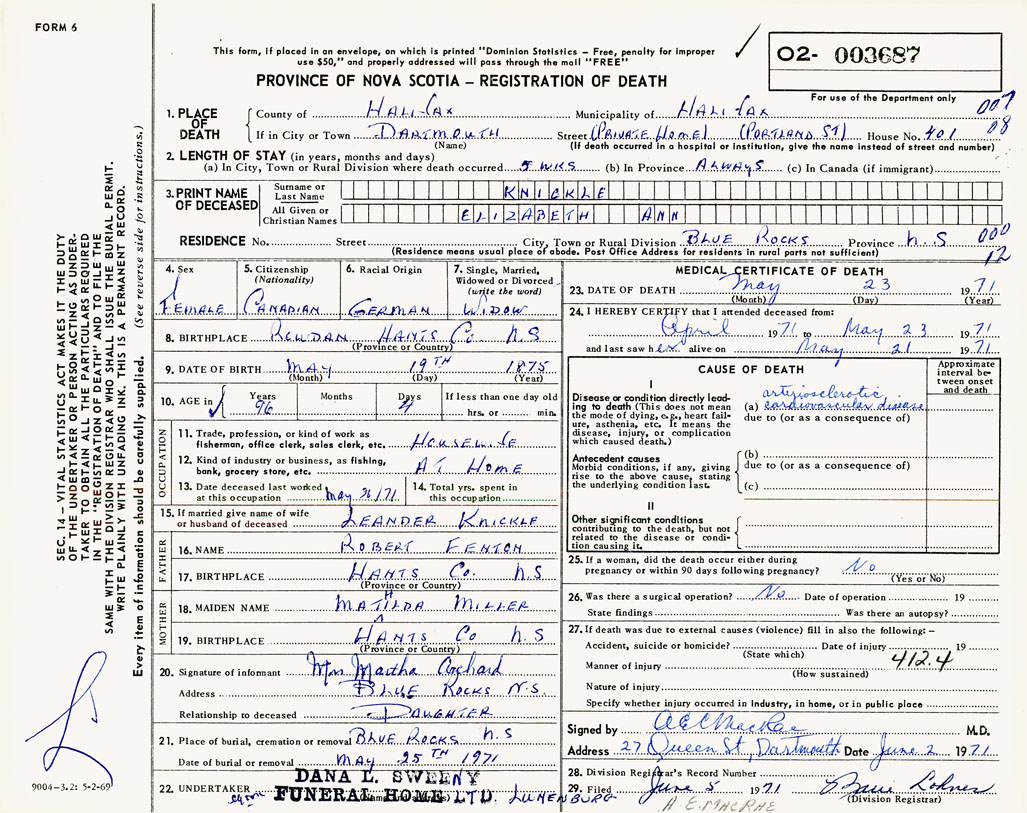 FORM 6
This form, if placed in an envelope, on which is printed "Dominion Statistics – Free, penalty for improper
use $50," and properly addressed will pass through the mail "FREE"
02- 003687
For use of the Department only
PROVINCE OF NOVA SCOTIA – REGISTRATION OF DEATH
007
08
1. PLACE OF DEATH
County of HALIFAX Municipality of HALIFAX
If in City or Town DARTMOUTH Street (PRIVATE HOME) (PORTLAND ST) House No. 401
(Name) (If death occurred in a hospital or institution, give the name instead of street and number)
2. LENGTH OF STAY (in years, months and days)
(a) In City, Town or Rural Division where death occurred 5 WKS (b) In Province ALWAYS (c) In Canada (if immigrant)
3. PRINT NAME OF DECEASED
Surname or Last Name KNICKLE
All Given or Christian Names ELIZABETH ANN
RESIDENCE No. Street City, Town or Rural Division BLUE ROCKS Province N.S
000
12
(Residence means usual place of abode. Post Office Address for residents in rural parts not sufficient)
4. Sex
FEMALE
5. Citizenship
(Nationality)
CANADIAN
6. Racial Origin
GERMAN
7. Single, Married,
Widowed or Divorced
(write the word)
WIDOW
8. BIRTHPLACE HANTS Co N.S
(Province or Country)
9. DATE OF BIRTH MAY 19TH 1875
(Month) (Day) (Year)
10. AGE in
Years
96
Months
Days
4
If less than one day old
hrs. or min.
OCCUPATION
11. Trade, profession, or kind of work as
fisherman, office clerk, sales clerk, etc. HOUSEWIFE
12. Kind of industry or business, as fishing,
bank, grocery store, etc. AT HOME
13. Date deceased last worked
at this occupation May /71
14. Total yrs. spent in
this occupation
15. If married give name of wife
or husband of deceased LEANDER KNICKLE
FATHER
16. NAME ROBERT FENTON
17. BIRTHPLACE HANTS Co. N.S
(Province or Country)
MOTHER
18. MAIDEN NAME MATHILDA MILLER
19. BIRTHPLACE HANTS Co N.S
(Province or Country)
20. Signature of informant Mrs Martha Orchard
Address BLUE ROCKS N.S.
Relationship to deceased DAUGHTER
21. Place of burial, cremation or removal BLUE ROCKS N.S
Date of burial or removal MAY 25TH 1971
22. UNDERTAKER DANA L. SWEENY
FUNERAL HOME LTD. LUNENBURG
(Name and address)
MEDICAL CERTIFICATE OF DEATH
23. DATE OF DEATH May 23 1971
(Month) (Day) (Year)
24. I HEREBY CERTIFY that I attended deceased from:
April 1971 to May 23 1971
and last saw her alive on May 21 1971
CAUSE OF DEATH
Approximate interval between onset and death
I
Disease or condition directly leading to death (This does not mean
the mode of dying, e.g., heart failure, asthenia, etc. It means the
disease, injury, or complication
which caused death.)
arteriosclerotic
(a) cardiovascular disease
due to (or as a consequence of)
Antecedent causes
Morbid conditions, if any, giving
rise to the above cause, stating
the underlying condition last.
(b)
due to (or as a consequence of)
(c)
II
Other significant conditions
contributing to the death, but not
related to the disease or condition causing it.
25. If a woman, did the death occur either during
pregnancy or within 90 days following pregnancy? No
(Yes or No)
26. Was there a surgical operation? No Date of operation 19
State findings Was there an autopsy?
27. If death was due to external causes (violence) fill in also the following: –
Accident, suicide or homicide? Date of injury 19
(State which)
412.4
Manner of injury
(How sustained)
Nature of injury
Specify whether injury occurred in industry, in home, or in public place
Signed by A E C MacRae M.D.
Address 27 Queen St, Dartmouth Date June 2 1971
28. Division Registrar's Record Number
29. Filed June 5 1971
(Division Registrar)
A E. MACRAE
SEC. 14 – VITAL STATISTICS ACT MAKES IT THE DUTY
OF THE UNDERTAKER OR PERSON ACTING AS UNDER-
TAKER TO OBTAIN ALL THE PARTICULARS REQUIRED
IN THE "REGISTRATION OF DEATH" AND TO FILE THE
SAME WITH THE DIVISION REGISTRAR WHO SHALL ISSUE THE BURIAL PERMIT.
WRITE PLAINLY WITH UNFADING INK. THIS IS A PERMANENT RECORD.
Every item of information should be carefully supplied. (See reverse side for instructions.)
9004-3.2: 5-2-69